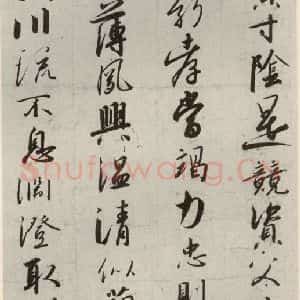 寸陰是競資父
孝當竭力忠則
薄夙興溫清似
川流不息淵澄取
Shufawang.Cn